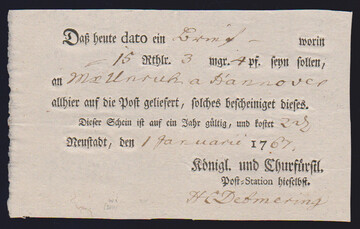 Daß heute dato ein Brief worin
15 Rthlr. 3 mgr. 4 pf. seyn sollen,
an Mr Unruh a Hannover
allhier auf die Post geliefert, solches bescheiniget dieses.
Dieser Schein ist auf ein Jahr gültig, und kostet
Neustadt, den 1 Januarii 1767.
Königl. und Churfürstl.
Post-Station hieselbst.
HCDetmering